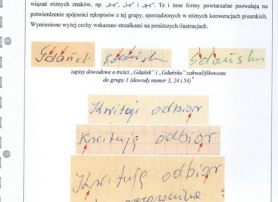 wiązań różnych znaków, np. „ Te i inne formy powtarzalne pozwalają na
potwierdzenie spójności rękopisów z tej grupy, sporządzonych w różnych konwencjach pisarskich.
Wymienione wyżej cechy wskazano strzałkami na poniższych ilustracjach.
Gdańsk Gdańsku Gdańsku
zapisy dowodowe o treści „Gdańsk" i „Gdańsku" zakwalifikowane
do grupy 1 (dowody numer 3, 24 i 54)
Kwituję odbiór
Kwituję odbiór
Kwituję odbiór